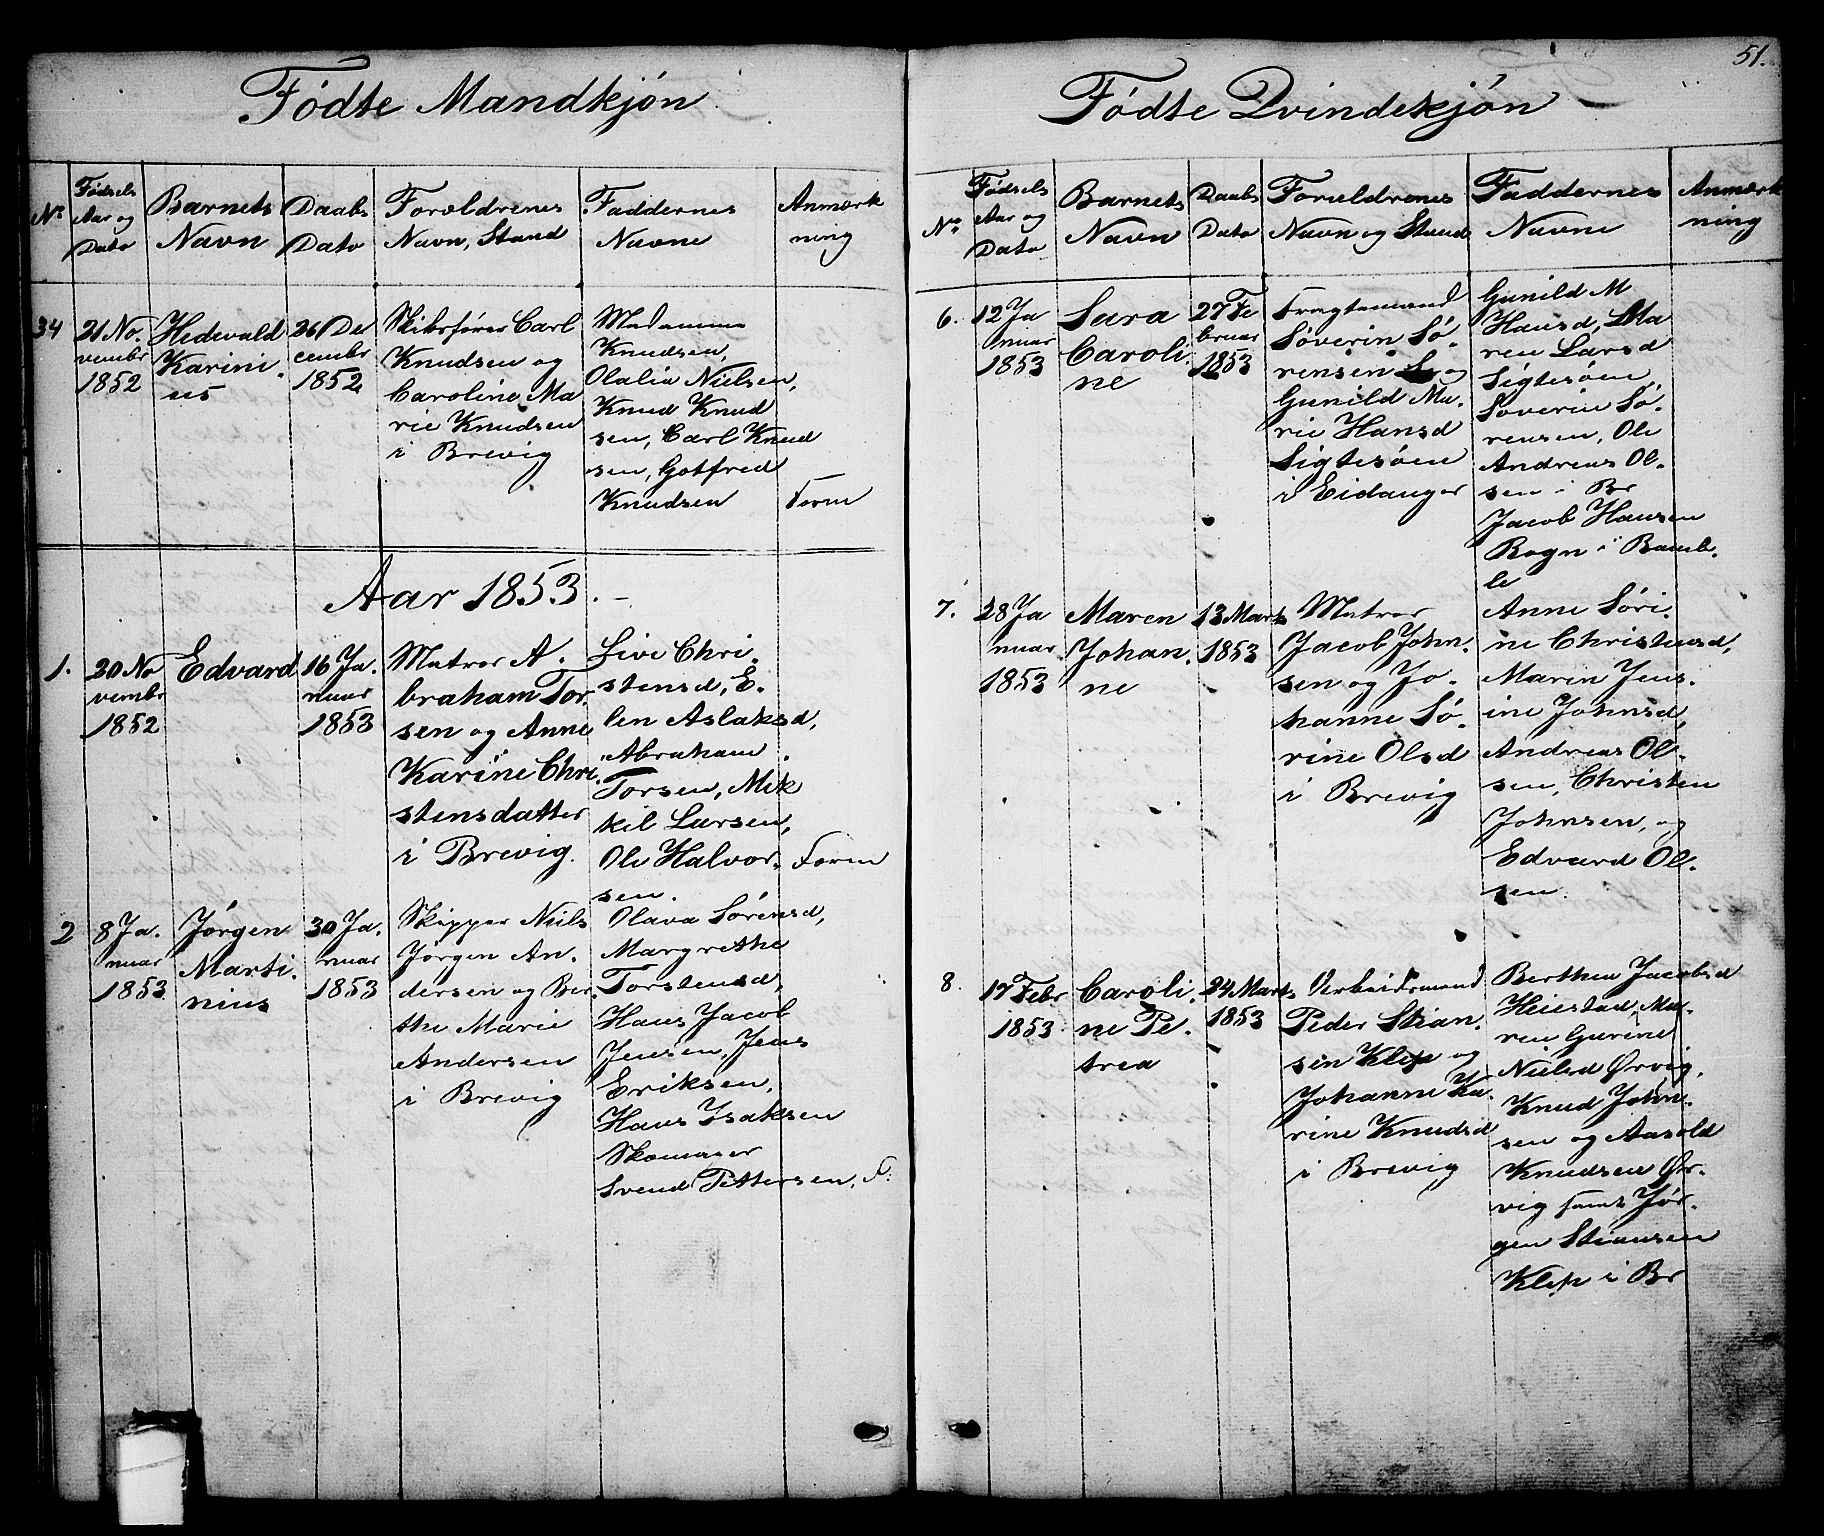 51.
Fødte Mandkjøn
No
Fødsels
Aar og
Dato
Barnets
Navn
Daabs
Dato
Forældrenes
Navn, Stand
Faddernes
Navne
Anmærk
ning
34
21 No.
vembr
1852
Hedevald
Karini.
us
26 De
cembr
1852
Skibsfører Carl
Knudsen og
Caroline Ma
rie Knudsen
i Brevig
Madamme
Knudsen,
Olalia Nielsen,
Knud Knud
sen, Carl Knud
sen, Gotfred
Knudsen
Form
Aar 1853. –
1.
20 No
vembr
1852
Edvard
16 Ja.
nuar
1853
Matros A.
braham Tor
sen og Anne
Karine Chri
stensdatter
i Brevig.
Live Chri.
stensd, E.
len Aslaksd,
Abraham
Torsen, Mik
kil Larsen,
Ole Halvor.
sen.
Form
2
8 Ja.
nuar
1853
Jørgen
Marti.
nius
30 Ja.
nuar
1853
Skipper Niels
Jørgen An.
dersen og Ber.
the Marie
Andersen
i Brevig
Olava Sørensd,
Margrethe
Torstensd,
Hans Jacob
Jensen, Jens
Eriksen,
Hans Isaksen
Skomager
Svend Pettersen, F.
Fødte Qvindekjøn
No
Fødsels
Aar og
Dato
Barnets
Navn
Daabs
Dato
Forældrenes
Navn og Stand
Faddernes
Navne
Anmærk
ning
6.
12 Ja
nuar
1853
Sara
Caroli.
ne
27 Fe
bruar
1853
Fragtemand
Søverin Sø.
rensen og
Gunild Ma.
rie Hansd
Sigtesøen
i Eidanger
Gunild M
Hansd, Ma
ren Larsd
Sigtesøen,
Søverin Sø.
rensen, Ole
Andreas Ol.
sen i Br
Jacob Hansen
Rogn i Bamb.
le
7.
28 Ja
nuar
1853
Maren
Johan.
ne
13 Marts
1853
Matros
Jacob John.
sen og Jo.
hanne Sø.
rine Olsd
i Brevig
Anne Søri.
ne Christensd,
Maren Jens.
ine Johnsd,
Andreas Ol.
sen, Christen
Johnsen, og
Edvard Ol.
sen.
8.
17 Febr
1853
Caroli.
ne Pe.
trea
24 Marts
1853
Arbeidsmand
Peder Stian.
sen Klep og
Johanne Ka.
rine Knudsd
i Brevig
Berthea Jacobsd
Heiestad, Ma.
ren Gurine
Nielsd Ørvig,
Knud John.
sen og Aasold
Knudsen Ør.
vig samt Jør.
gen Stiansen
Klep i Br